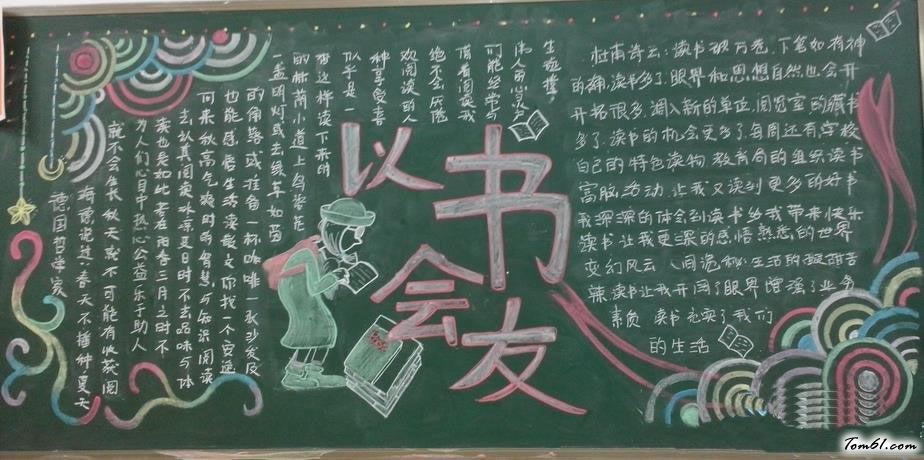 以书会友
德国哲学家
海德说过:春天不播种夏天
就不会生长秋天就不可能有收获阅
为人们心目中热心公益乐于助人
读也是如此若在阳春三月之时不
去认真阅读 凉夏日时不去品味与体
何来秋高气爽时的智慧与知识阅读
也能感 生活读散文你找一个安逸
的角落或 角一杯咖啡一张沙发及
一盏明灯或去绿草如茵
的林荫小道上鸟语花
香这样读下来的
似乎是一
种享受喜
欢阅读的人
绝不会厌倦
借着阅读我
们能经常与
伟人的心灵产
生碰撞,
杜甫诗云:读书破万卷,下笔如有神
的确,读书多了眼界和思想自然也会开
开拓很多,调入新的单位,阅览室的藏书
多了,读书的机会更多了,每周还有学校
自己的特色读物 教育局的组织读书
活动,让我又读到更多的好书
我深深的体会到读书给我带来快乐
读书让我更深的感悟熟悉的世界
变幻风云 诡秘,生活的酸甜苦
辣,读书让我开阔了眼界增强了业务
素质 读书充实了我们
的生活
Tom61.com